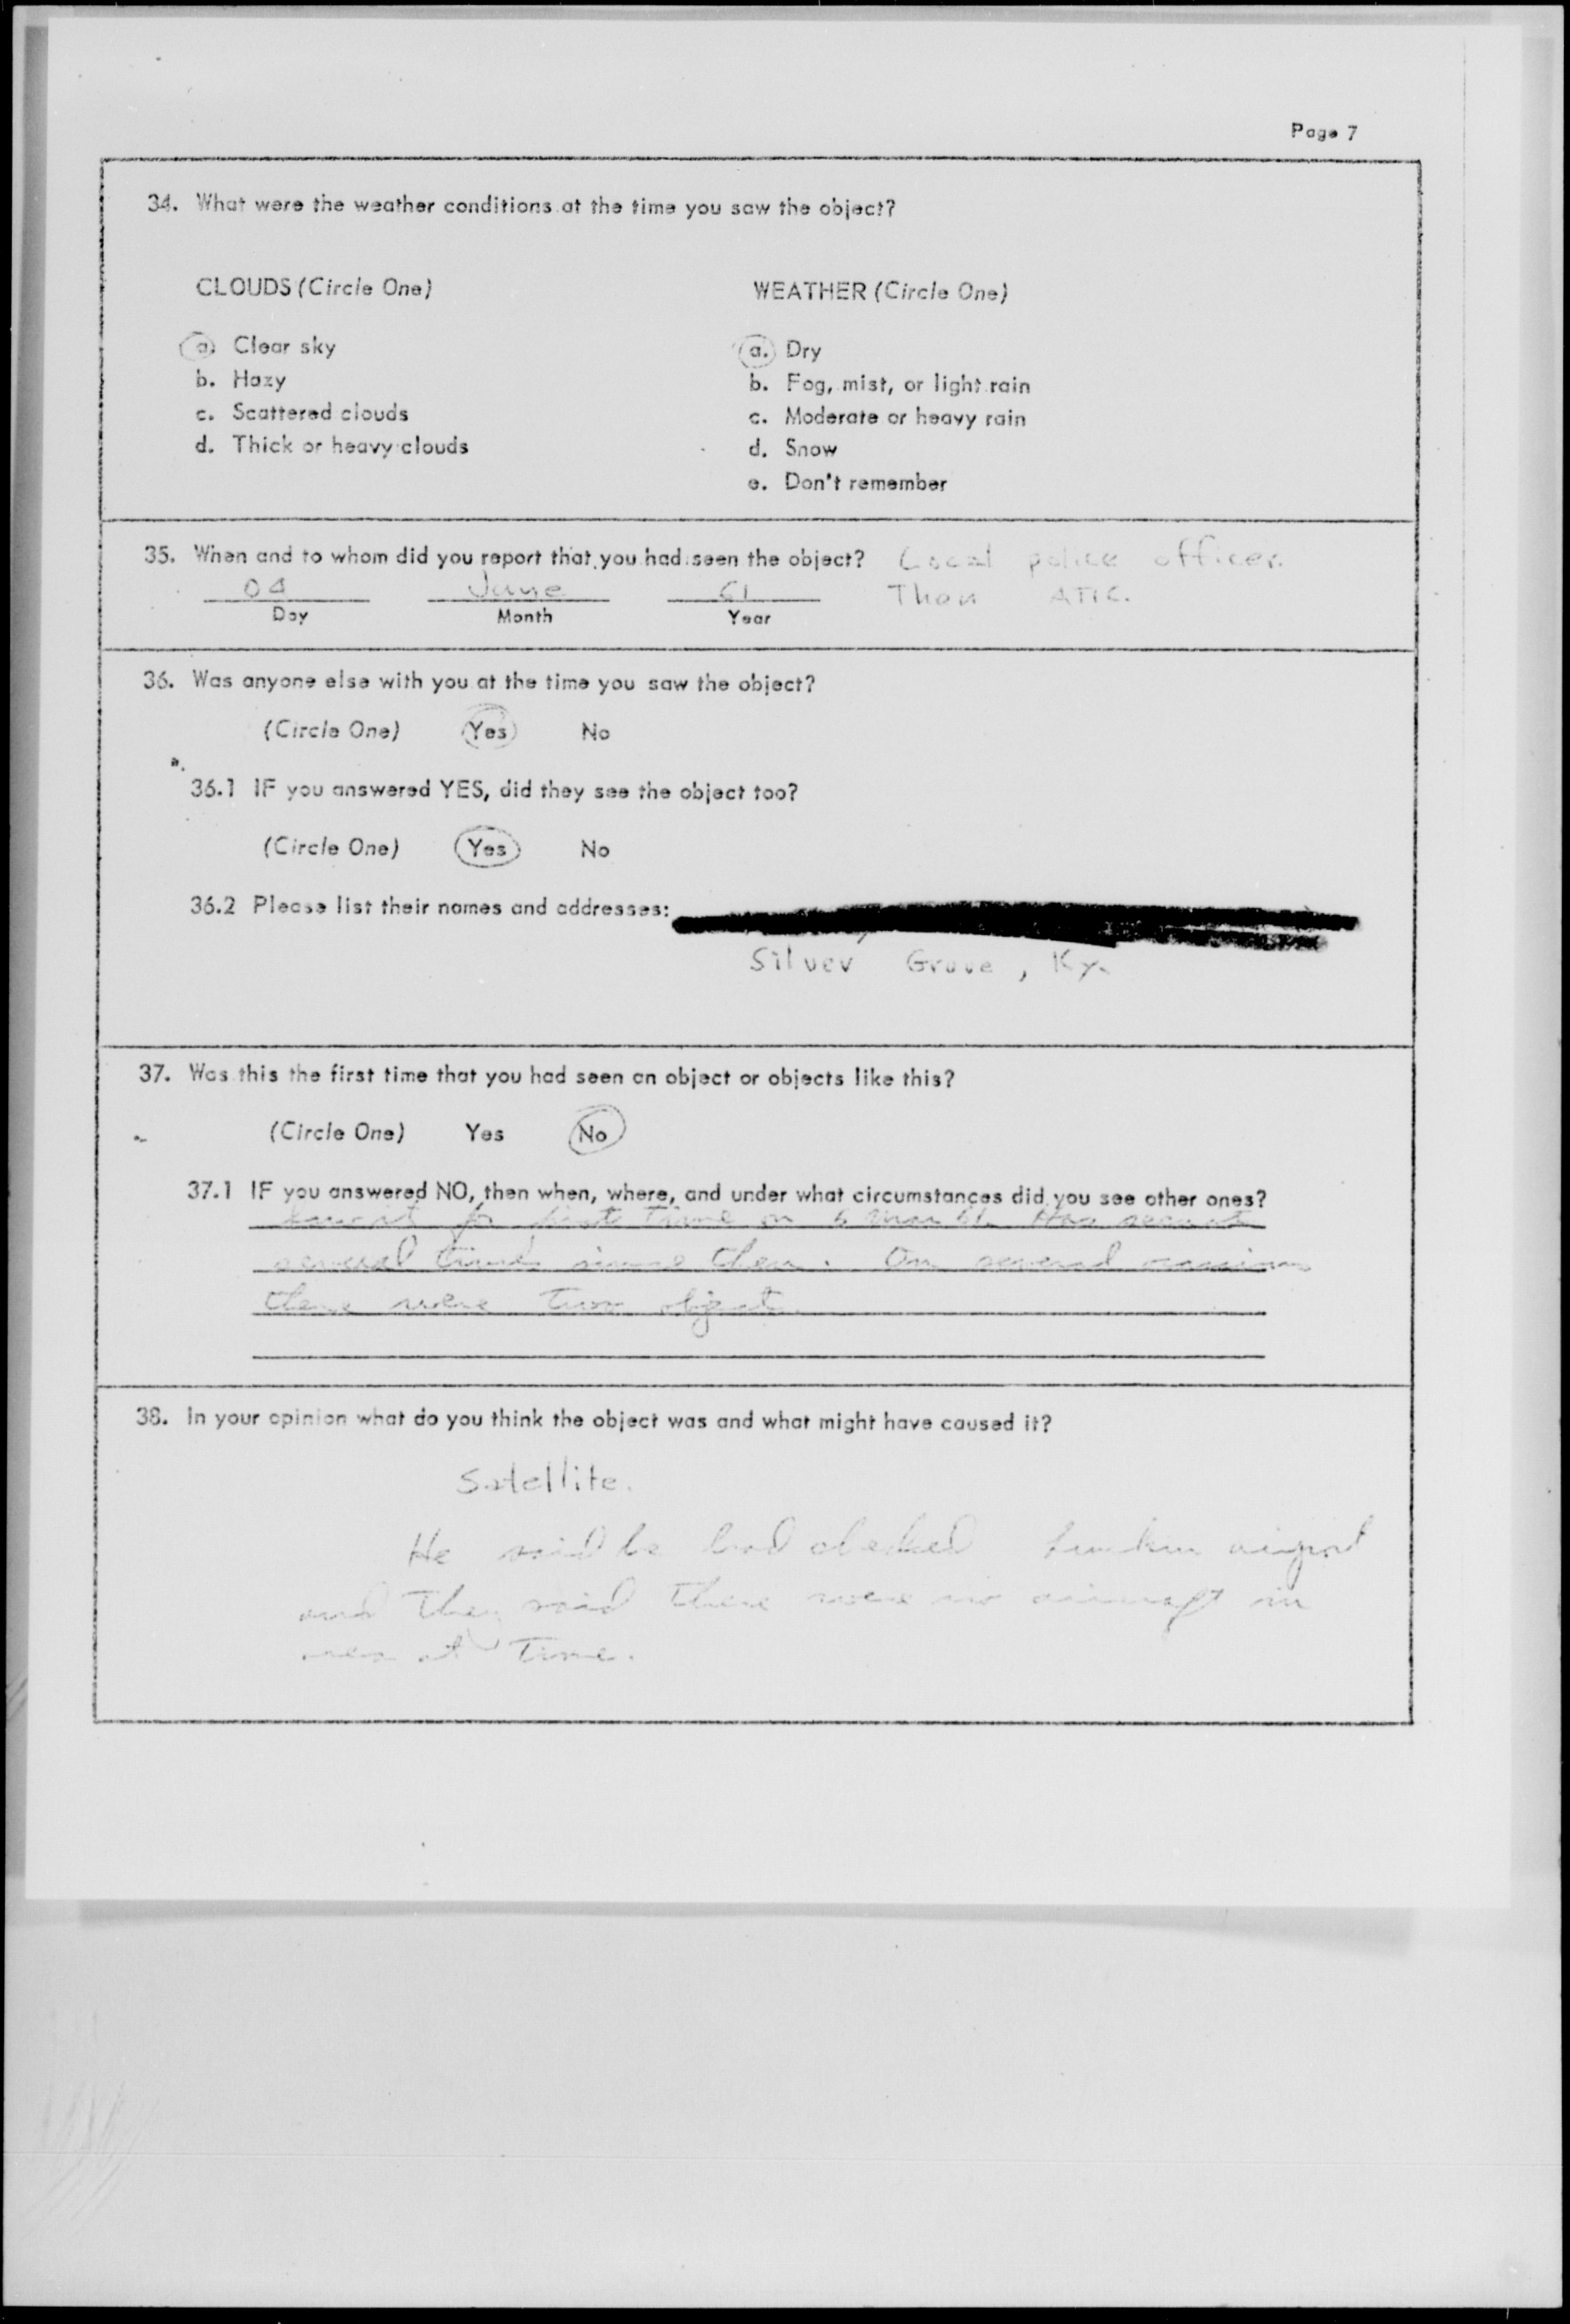 Page 7
34. What were the weather conditions at the time you saw the object?
CLOUDS (Circle One)
WEATHER (Circle One)
a. Clear sky
b. Hazy
c. Scattered clouds
d. Thick or heavy clouds
a. Dry
b. Fog, mist, or light rain
c. Moderate or heavy rain
d. Snow
e. Don't remember
35. When and to whom did you report that you had seen the object? Local police officer.
04 June 61 Then ATIC.
Day Month Year
36. Was anyone else with you at the time you saw the object?
(Circle One) Yes No
36.1 IF you answered YES, did they see the object too?
(Circle One) Yes No
36.2 Please list their names and addresses:
Silver Grove, Ky.
37. Was this the first time that you had seen an object or objects like this?
(Circle One) Yes No
37.1 IF you answered NO, then when, where, and under what circumstances did you see other ones?
it for first time on Has seen it
several times since then. On several occasions
there were two object.
38. In your opinion what do you think the object was and what might have caused it?
Satellite.
He said he had checked airport
and they said there were no aircraft in
area at time.